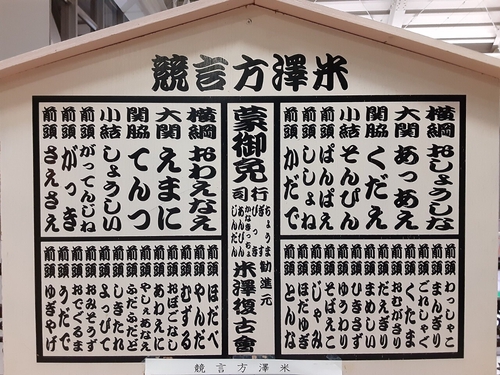 米澤方言競
横綱 おしょうしな
大関 あっあえ
関脇 くだえ
小結 そんぴん
前頭 ぱんぱえ
前頭 ししょね
前頭 かだで
前頭 わっしゃこ
前頭 まんぎり
前頭 ごれしゃぐ
前頭 くたま
前頭 おむがさり
前頭 だえぎり
前頭 まめしい
前頭 ゆうわり
前頭 そばえこ
前頭 じゃみ
前頭 ほだゆぎ
前頭 とんな
蒙御免
行司
ちょうま
ぎっす
びっき
かなぎっちょ
あんびん
じんだん
勧進元
米澤復古會
横綱 おわえなえ
大関 えまに
関脇 てんつ
小結 しょうしい
前頭 がってんしね
前頭 がっき
前頭 さえさえ
前頭 ほだべ
前頭 やんだ
前頭 むずる
前頭 おぼごなし
前頭 あわえに
前頭 やしぇあなえ
前頭 ふだふだど
前頭 しきたれ
前頭 よっぴて
前頭 おみそうず
前頭 おでぐるま
前頭 うだで
前頭 ゆぎやげ
米澤方言競